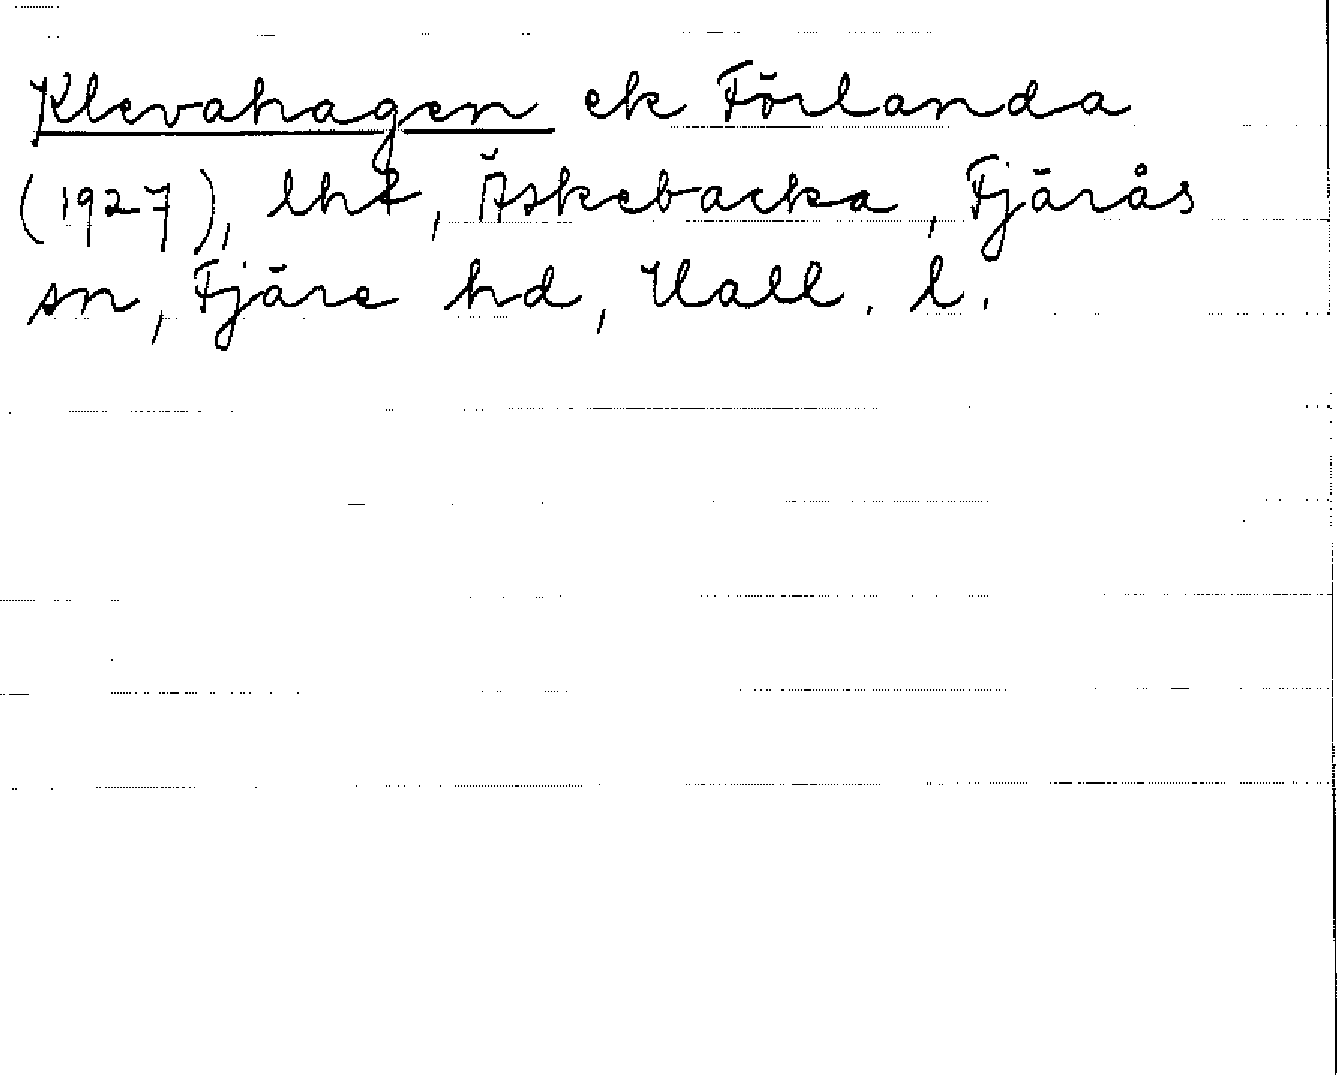 Klevahagen ek Förlanda
(1927), lht, Äskebacka, Fjärås
sn, Fjäre hd, Hall. l.